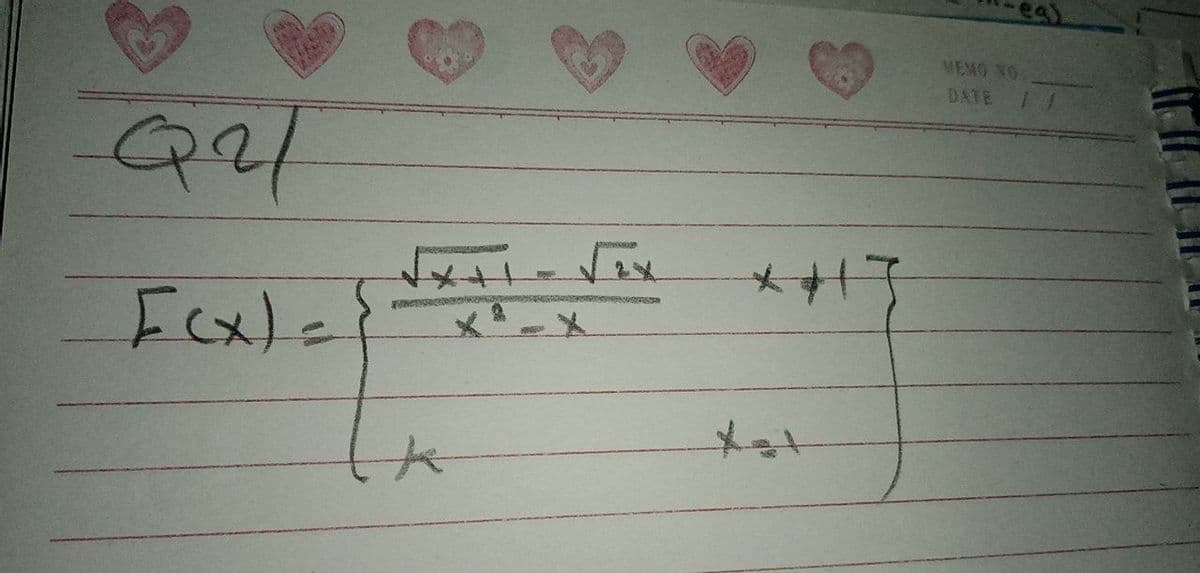 -eg)
MEMO NO.
DATE / /
Q2/
F(x) = { (√x+1 - √2x) / (x² - x)   x ≠ 1 }
k   x = 1